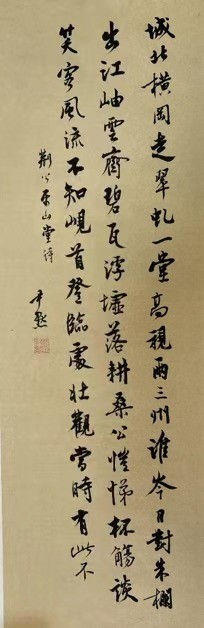 城北橫岡走翠虬一堂高視兩三州淮岑日對朱欄
出江岫雲齊碧瓦浮墟落耕桑公愷悌杯觴談
笑客風流不知峴首登臨處壯觀當時有此不
荊公平山堂詩
尹默